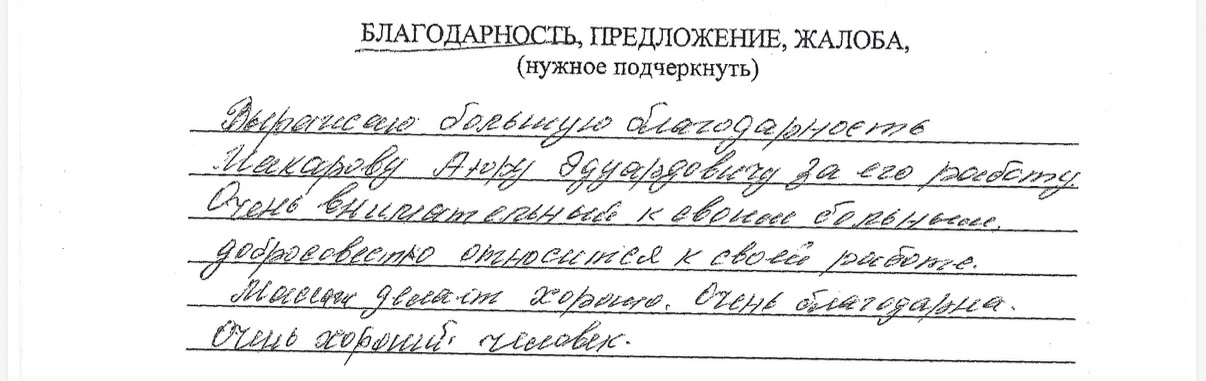 БЛАГОДАРНОСТЬ, ПРЕДЛОЖЕНИЕ, ЖАЛОБА,
(нужное подчеркнуть)
Выражаю большую благодарность
Макарову Аюру Эдуардовичу за его работу.
Очень внимательный к своим больным,
добросовестно относится к своей работе.
Массаж делает хорошо. Очень благодарна.
Очень хороший человек.